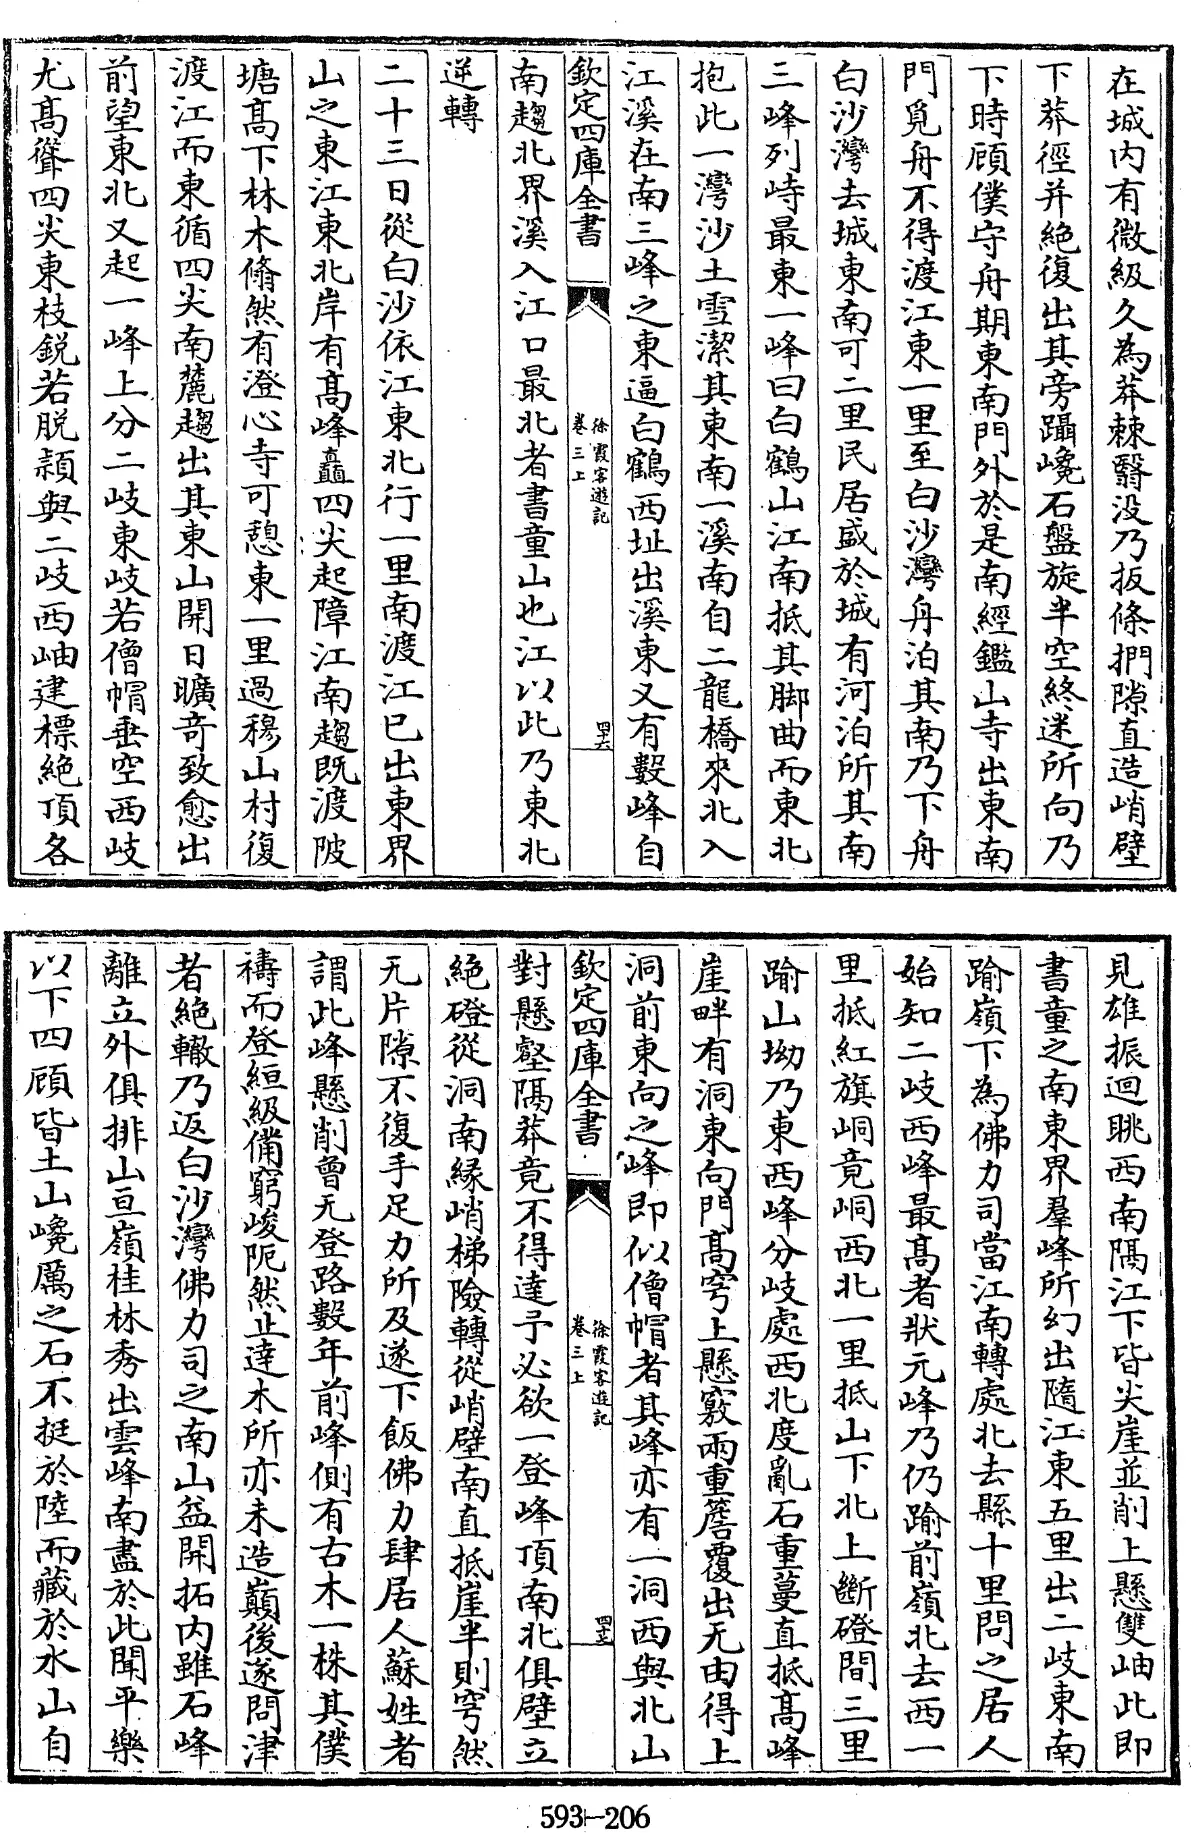 在城内有微級久為莽棘翳没乃扳條捫隙直造峭壁
下莽徑并絶復出其旁躡巉石盤旋半空終迷所向乃
下時顧僕守舟期東南門外於是南經鑑山寺出東南
門覓舟不得渡江東一里至白沙灣舟泊其南乃下舟
白沙灣去城東南可二里民居盛於城有河泊所其南
三峰列峙最東一峰曰白鶴山江南抵其脚曲而東北
抱此一灣沙土雪潔其東南一溪南自二龍橋來北入
江溪在南三峰之東逼白鶴西址出溪東又有數峰自
欽定四庫全書
徐霞客遊記
卷三上
四十六
南趨北界溪入江口最北者書童山也江以此乃東北
逆轉
二十三日從白沙依江東北行一里南渡江已出東界
山之東江東北岸有髙峰矗四尖起障江南趨既渡陂
塘髙下林木翛然有澄心寺可憩東一里過穆山村復
渡江而東循四尖南麓趨出其東山開日曠奇致愈出
前望東北又起一峰上分二岐東岐若僧帽垂空西岐
尤髙聳四尖東枝鋭若脱頴與二岐西岫建標絶頂各
見雄振迴眺西南隅江下皆尖崖並削上懸雙岫此即
書童之南東界羣峰所幻出隨江東五里出二岐東南
踰嶺下為佛力司當江南轉處北去縣十里問之居人
始知二岐西峰最髙者狀元峰乃仍踰前嶺北去西一
里抵紅旗峒竟峒西北一里抵山下北上斷磴間三里
踰山坳乃東西峰分岐處西北度亂石重蔓直抵髙峰
崖畔有洞東向門髙穹上懸竅兩重簷覆出无由得上
洞前東向之峰即似僧帽者其峰亦有一洞西與北山
欽定四庫全書
徐霞客遊記
卷三上
四十七
對懸壑隔莽竟不得達予必欲一登峰頂南北俱壁立
絶磴從洞南緣峭梯險轉從峭壁南直抵崖半則穹然
无片隙不復手足力所及遂下飯佛力肆居人蘇姓者
謂此峰懸削曾无登路數年前峰側有古木一株其僕
禱而登絙級備窮峻阨然止達木所亦未造巔後遂問津
者絶轍乃返白沙灣佛力司之南山益開拓内雖石峰
離立外俱排山亘嶺桂林秀出雲峰南盡於此聞平樂
以下四顧皆土山巉厲之石不挺於陸而藏於水山自
593-206